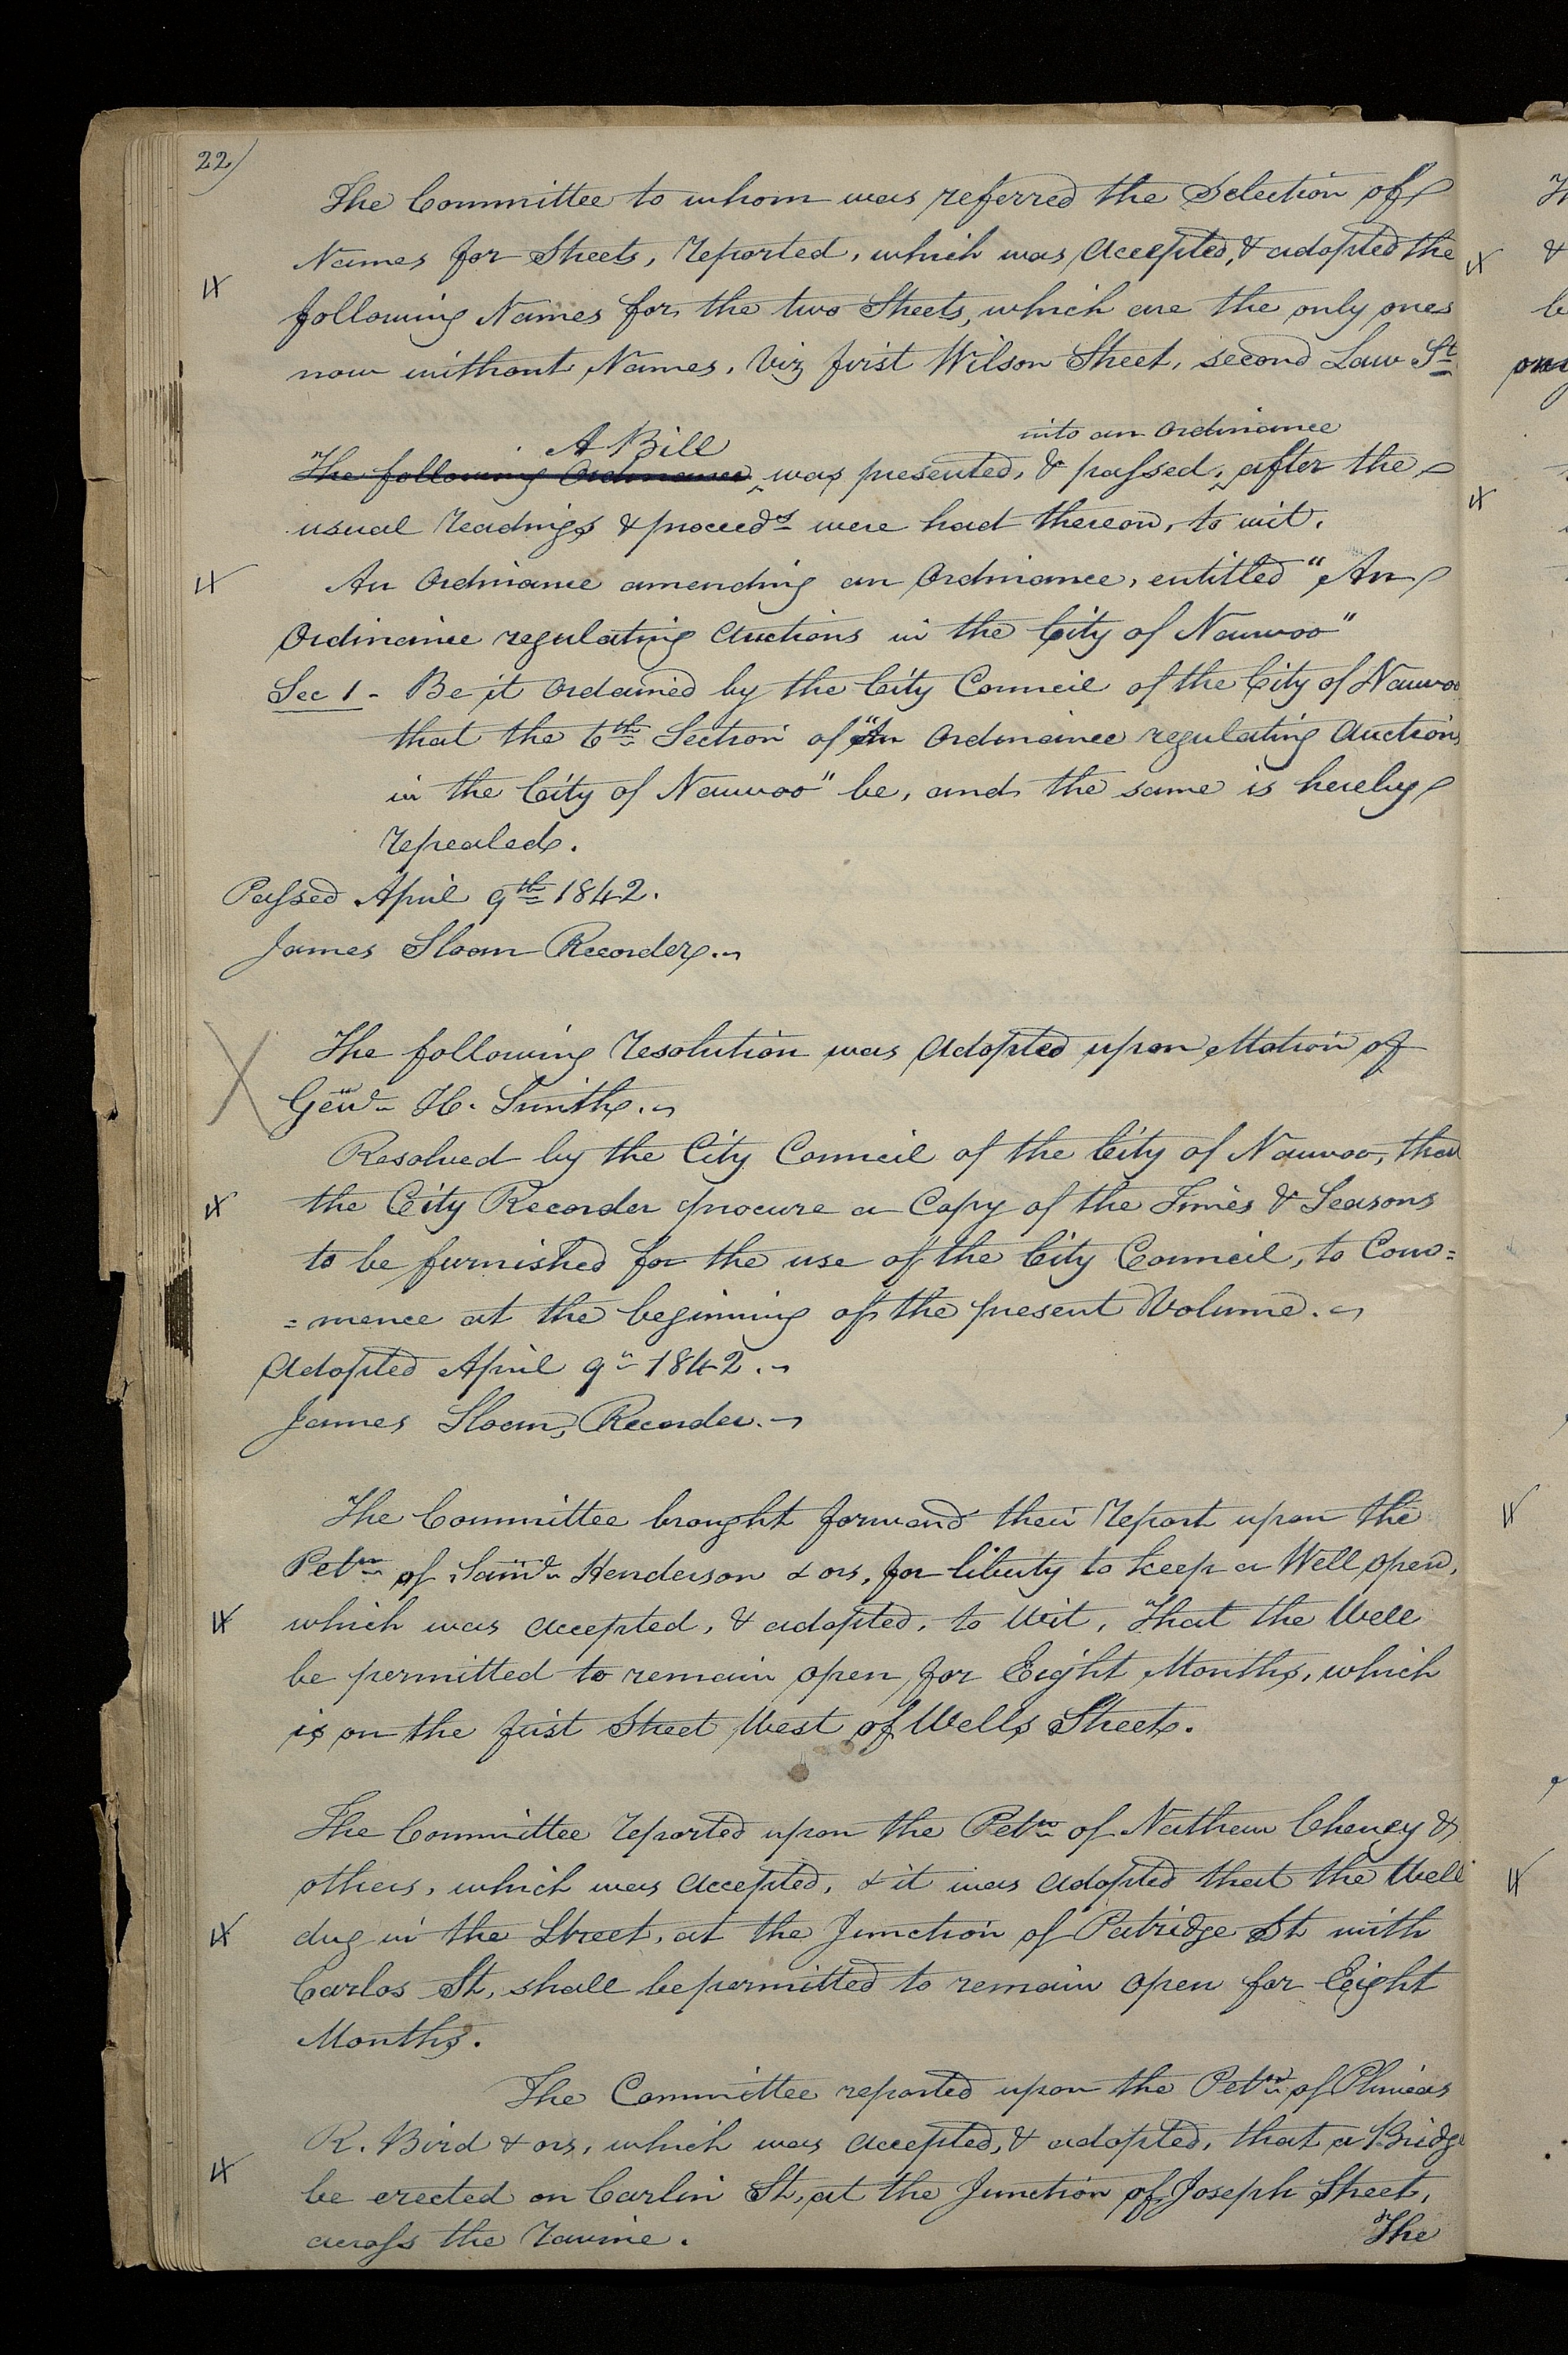 22)
The Committee to whom was referred the Selection of
Names for Streets, reported, which was accepted, & adopted the
following Names for the two Streets, which are the only ones
now without Names, viz first Wilson Street, second Law St
A Bill into an Ordinance
The following Ordinance was presented, & passed, after the
usual readings & proceeds were had thereon, to wit.
An Ordinance amending an Ordinance, entitled "An
Ordinance regulating Auctions in the City of Nauvoo"
Sec 1 - Be it Ordained by the City Council of the City of Nauvoo
that the 6th Section of "An Ordinance regulating Auctions
in the City of Nauvoo" be, and the same is hereby
repealed.
Passed April 9th 1842.
James Sloan Recorder.
The following resolution was adopted upon Motion of
H. Smith.
Resolved by the City Council of the City of Nauvoo, that
the City Recorder procure a Copy of the Times & Seasons
to be furnished for the use of the City Council, to Com=
=mence at the beginning of the present Volume.
Adopted April 9th 1842.
James Sloan, Recorder.
The Committee brought forward their report upon the
Petn of Henderson & ors, for liberty to keep a Well open,
which was accepted, & adopted, to wit, That the Well
be permitted to remain open for Eight Months, which
is on the first Street West of Wells Street.
The Committee reported upon the Petn of Nathan Cheney &
others, which was accepted, & it was adopted that the Well
dug in the Street, at the Junction of Patridge St with
Carlos St, shall be permitted to remain open for Eight
Months.
The Committee reported upon the Petn of Phineas
R. Bird & ors, which was accepted, & adopted, that a Bridge
be erected on Carlin St, at the Junction of Joseph Street,
across the ravine. The